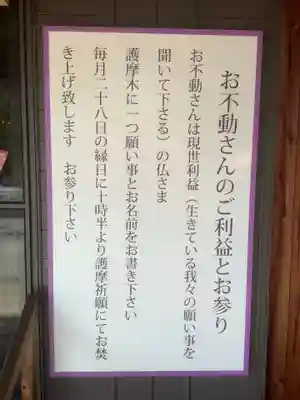 お不動さんのご利益とお参り
お不動さんは現世利益（生きている我々の願い事を
聞いて下さる）の仏さま
護摩木に一つ願い事とお名前をお書き下さい
毎月二十八日の縁日に十時半より護摩祈願にてお焚
き上げ致します　お参り下さい